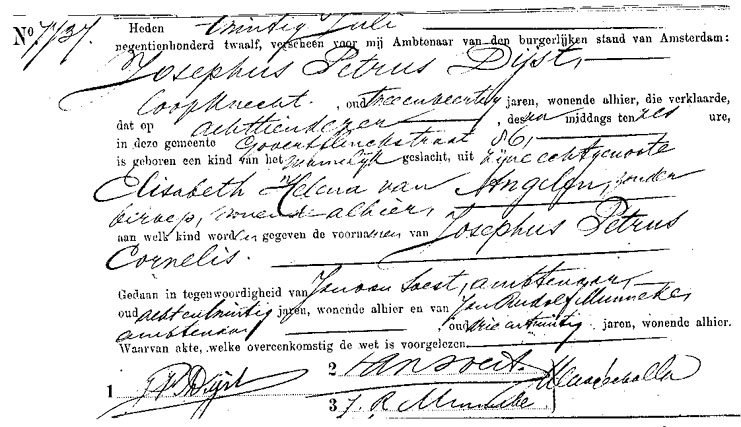 No. 7737. Heden twintig Juli
negentienhonderd twaalf, verscheen voor mij Ambtenaar van den burgerlijken stand van Amsterdam:
Josephus Petrus Dijst,
Loopknecht, oud tweeenveertig jaren, wonende alhier, die verklaarde,
dat op achttiendezer, des na middags ten zes ure,
in deze gemeente Govertflinckstraat 86,
is geboren een kind van het mannelijk geslacht, uit zijne echtgenoote
Elisabeth Helena van Angelen, zonder
beroep, wonende alhier,
aan welk kind worden gegeven de voornamen van Josephus Petrus
Cornelis.
Gedaan in tegenwoordigheid van Jan van Soest, ambtenaar,
oud achtentwintig jaren, wonende alhier en van Jan Rudolf Munneke,
ambtenaar oud drieentwintig jaren, wonende alhier.
Waarvan akte, welke overeenkomstig de wet is voorgelezen.
1 JP Dijst 2 van Soest.
3 J. R. Munneke